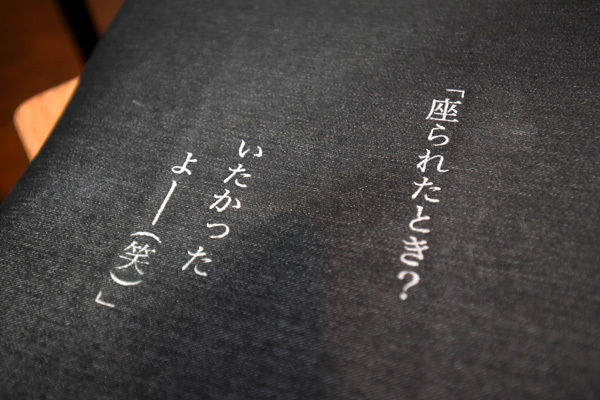 「座られたとき?
いたかった
よー(笑)」